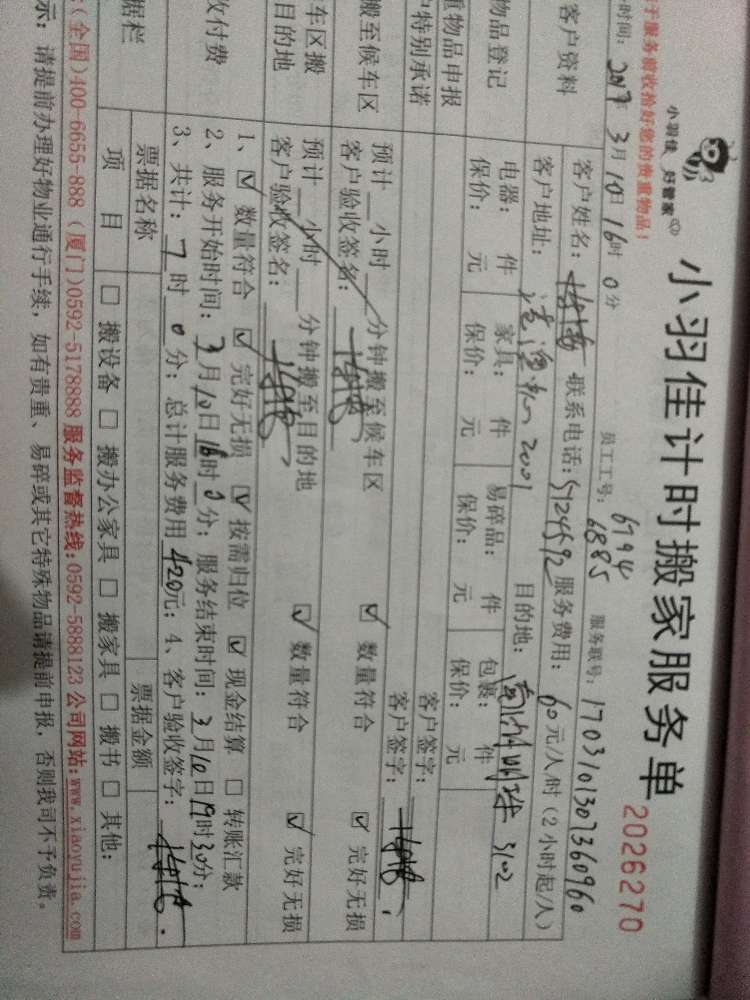 小羽佳计时搬家服务单
2026270
小羽佳 归管家
于服务前收拾好您的贵重物品!
时间: 2017年 3月 10日 16时 0分 员工工号: 6794 6885 服务联号: 1703101307360960
客户资料
客户姓名: 联系电话: 5124592 服务费用: 60元/人/时(2小时起/人)
客户地址: 2001 目的地: 3102
物品登记
电器: 件 家具: 件 易碎品: 件 包裹: 件
保价: 元 保价: 元 保价: 元 保价: 元
重物品申报 客户签字:
户特别承诺 客户签字:
搬至候车区
预计 小时 分钟搬至候车区 ☑ 数量符合 ☑ 完好无损
客户验收签名:
车区搬
目的地
预计 小时 分钟搬至目的地 ☑ 数量符合 ☑ 完好无损
客户验收签名:
收付费
1、☑ 数量符合 ☑ 完好无损 ☑ 按需归位 ☑ 现金结算 □ 转账汇款
2、服务开始时间: 3月10日16时0分; 服务结束时间: 3月10日19时30分;
3、共计: 7时0分; 总计服务费用420元; 4、客户验收签字:
据栏
票据名称 票据金额
项目 □ 搬设备 □ 搬办公家具 □ 搬家具 □ 搬书 □ 其他:
(全国)400-6655-888 (厦门)0592-5178888 服务监督热线:0592-5888123 公司网站:www.xiaoyujia.com
示: 请提前办理好物业通行手续, 如有贵重、易碎或其它特殊物品请提前申报, 否则我司不予负责。